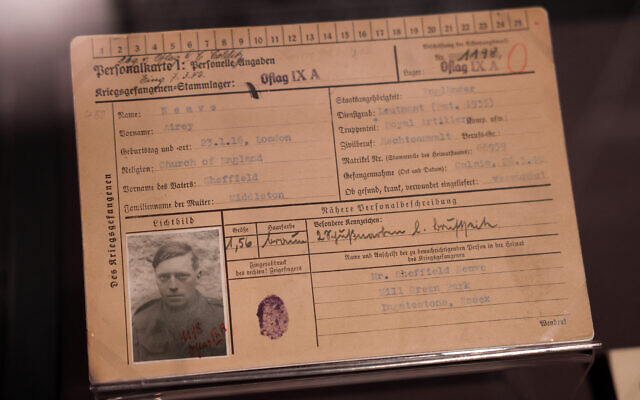 1 2 3 4 5 6 7 8 9 10 11 12 13 14 15 16 17 18 19 20 21 22 23 24 25
Personalkarte I: Personelle Angaben
Kriegsgefangenen-Stammlager: Oflag IX A
Nr. 1198
Lager: Oflag IX A
Des Kriegsgefangenen
Name: Neave
Vorname: Airey
Geburtstag und -ort: 23.1.16, London
Religion: Church of England
Vorname des Vaters: Sheffield
Familienname der Mutter: Middleton
Staatsangehörigkeit: Engländer
Dienstgrad: Leutnant (Pat. 1935)
Truppenteil: Royal Artillery Komp. usw.:
Zivilberuf: Rechtsanwalt Berufs-Gr.:
Matrikel Nr. (Stammrolle des Heimatstaates): 66939
Gefangennahme (Ort und Datum): Calais, 26.5.40
Ob gesund, krank, verwundet eingeliefert: Verwundet
Lichtbild
Nähere Personalbeschreibung
Größe Haarfarbe Besondere Kennzeichen:
braun 2 Schußnarben l. Brustseite
Fingerabdruck
des rechten! Zeigefingers
Name und Anschrift der zu benachrichtigenden Person in der Heimat
des Kriegsgefangenen
Mr. Sheffield Neave
Mill Green Park
Ingatestone, Essex
Wenden!